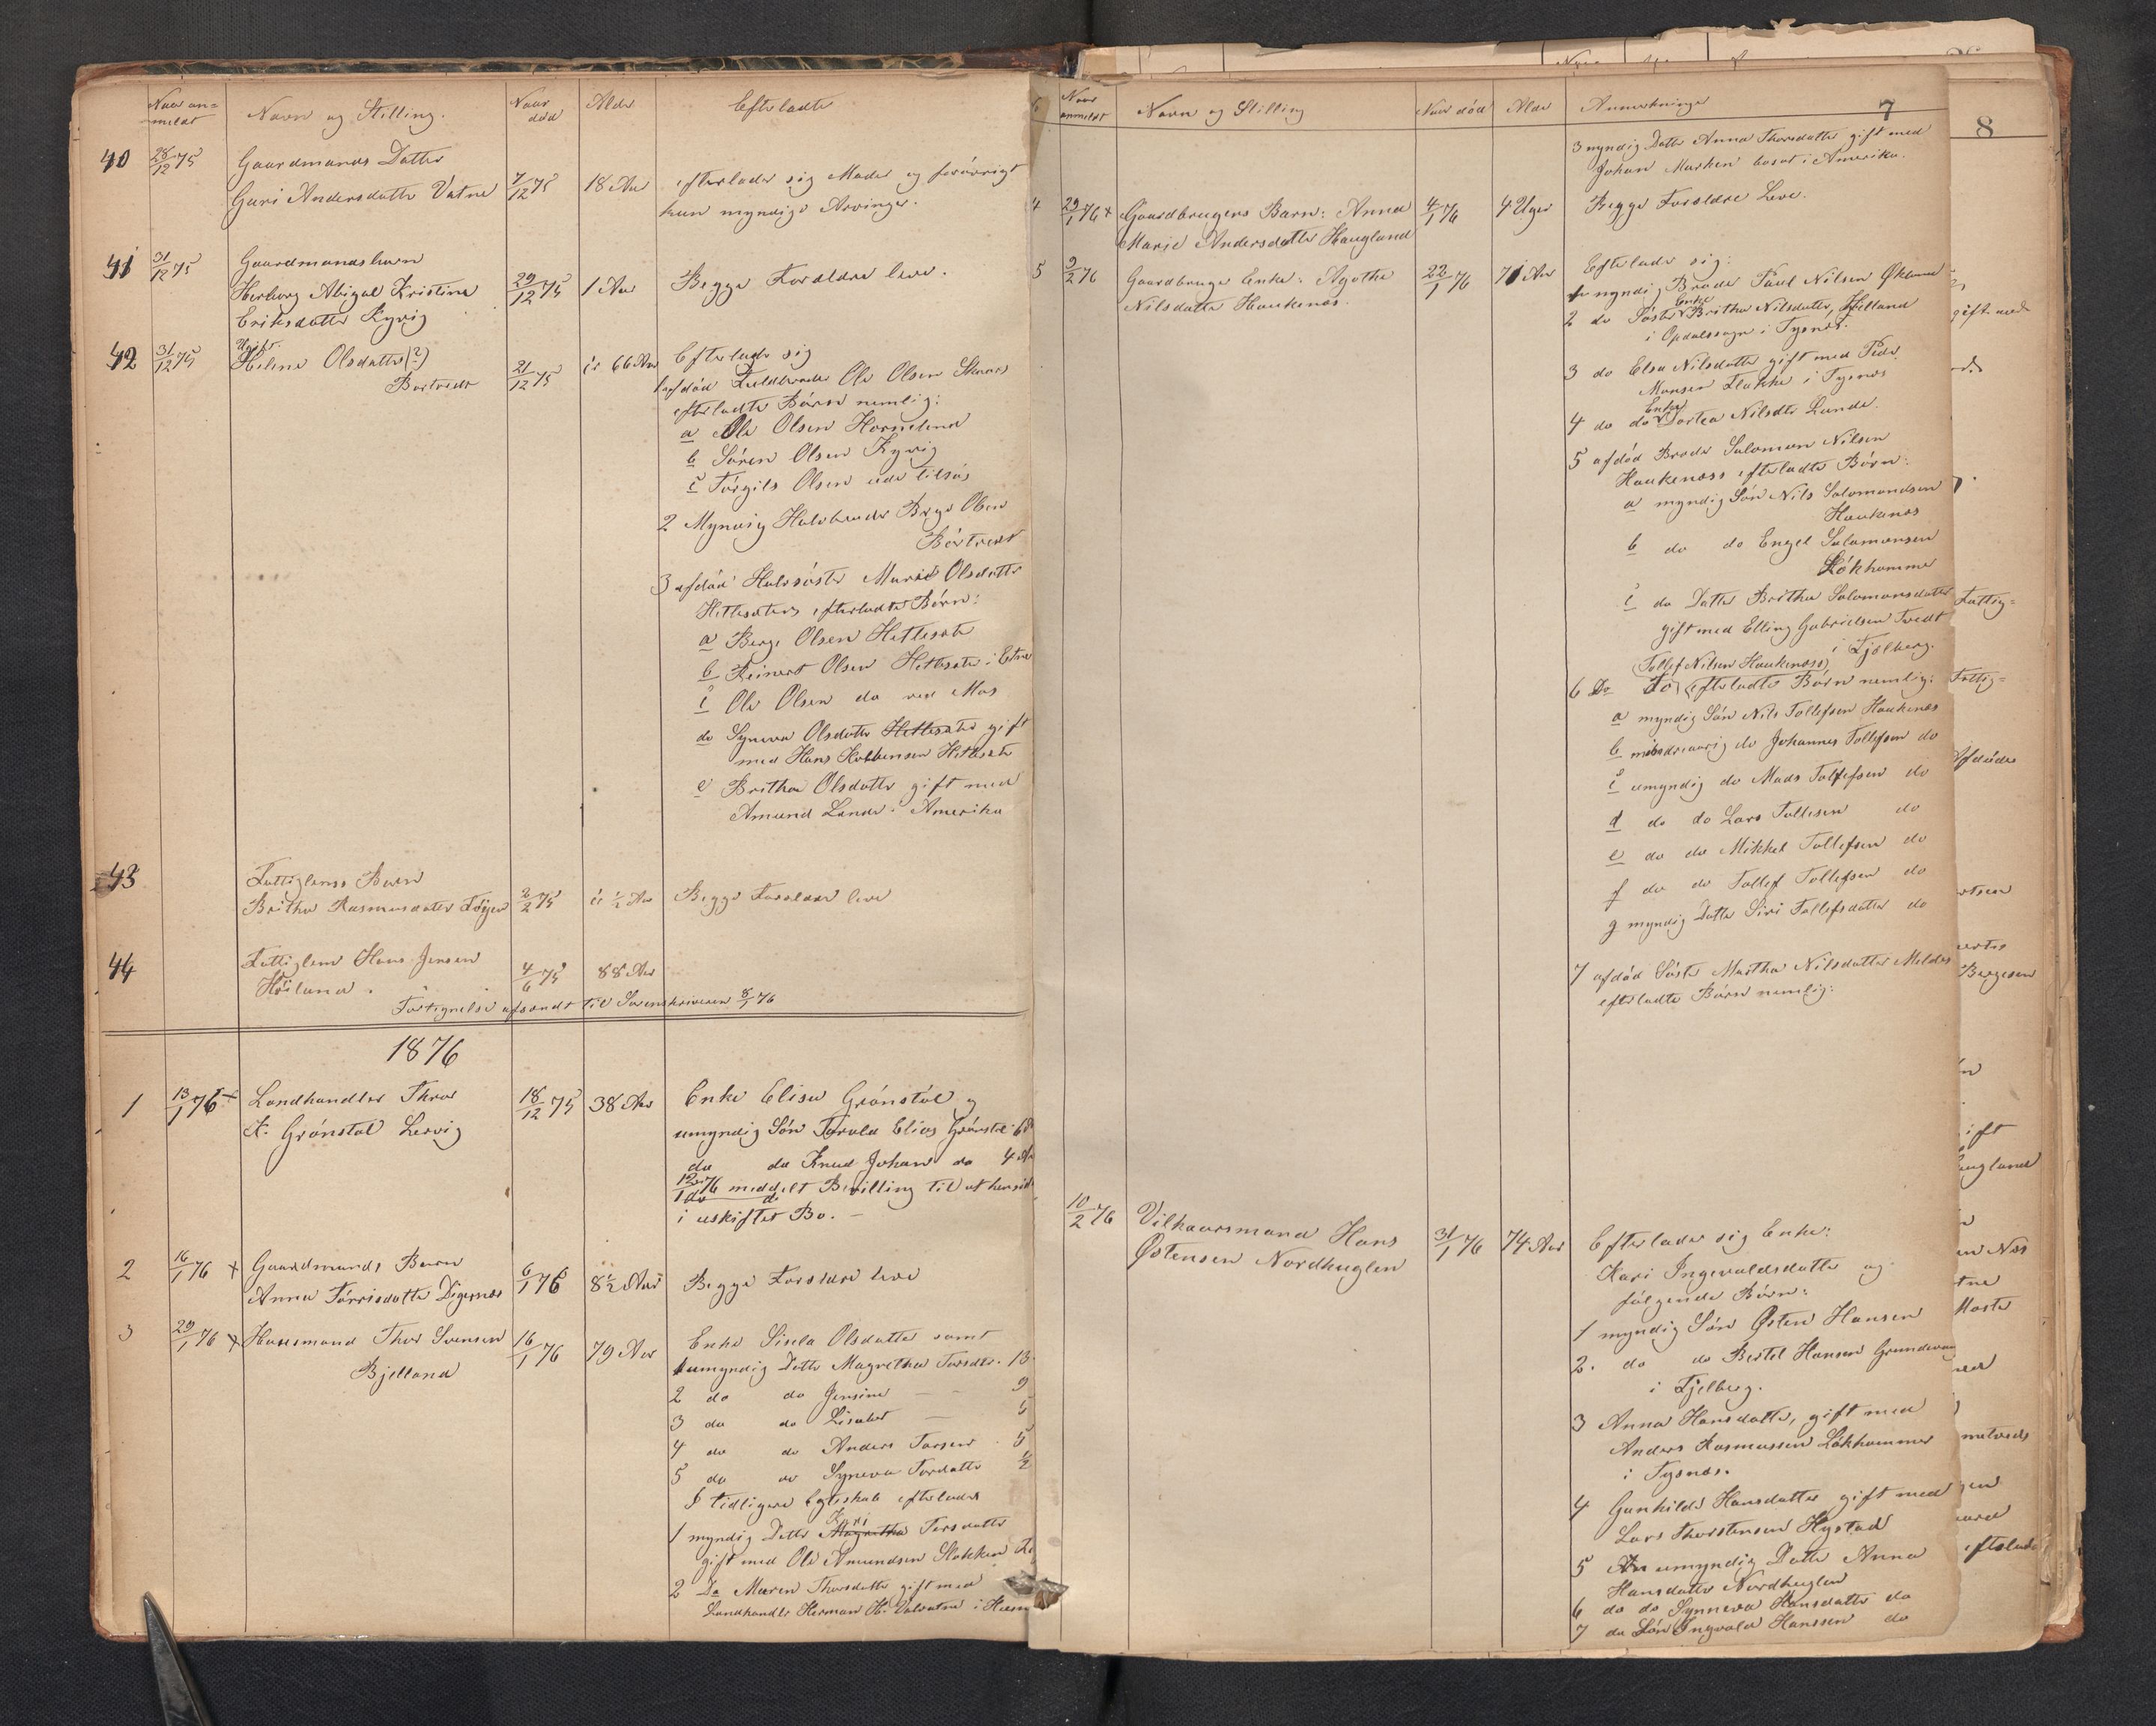 Naar an=
meldt
Navn og Stilling.
Naar
død
Alder
Efterladte
40 28/12 75 Gaardmands Datter
Guri Andersdatter Vatne 7/12 75 18 Aar efterlader sig Moder og forøvrigt
kun myndige Arvinger.
41 31/12 75 Gaardmandsbarn
Herborg Abigal Kristine 29/12 75 1 Aar Begge Forældre leve.
Eriksdatter Kyvig
42 31/12 75 Ugift
Helene Olsdatter (?) 21/12 75 66 Aar Efterlader sig
Bortvedt
1 afdød Fuldbroder Ole Olsen
efterladte Børn nemlig:
a Ole Olsen
b Søren Olsen Kyvig
c Torgils Olsen ude tilsøs
2 Myndig Halvbroder Brye Olsen
Børtvedt
3 afdød Halvsøster Marie Olsdatter
Hettesæters efterladte Børn:
a Berge Olsen Hettesæter
b Reinert Olsen Hettesæter i Etne
c Ole Olsen do ved Mos
d Synneva Olsdatter Hettesæter gift
med Hans Hettesæter
e Britha Olsdatter gift med
Amund Lande i Amerika
43 Fattiglems Barn
Britha Rasmusdatter 2/2 75 1/2 Aar Begge Forældre leve
44 Fattiglem Hans Jensen
Høiland. 4/6 75 88 Aar
Fortegnelse afsendt til Sorenskriveren 8/1 76
1876
1 13/1 76 + Landhandler Thor 18/12 75 38 Aar Enke Elisa Grønstøl og
A. Grønstøl Lervig umyndig Søn Torvald Elias Grønstøl 6
do do Knud Johan do 4
12/1 76 meddelt Bevilling til at hensidde
i uskiftet Bo. —
2 16/1 76 + Gaardmands Barn
Anna Tørrisdatter Digernes 6/1 76 8 1/2 Aar Begge Forældre leve
3 29/1 76 + Huusmand Thor Svensen 16/1 76 79 Aar Enke Sisela Olsdatter samt
Bjelland
1 umyndig Datter Magretha Torsdtr. 13
2 do do Jensine — — 9
3 do do Lisabet —
4 do do Anders Torsen 5
5 do do Synneva Tordatter 1/2
I tidligere Egteskab efterlader
1 myndig Datter Kari Torsdatter
gift med Ole Amundsen Stokken
2 Do Maren Thorsdatter gift med
Landhandler Herman H. Valvatne i
Naar
anmeldt
Navn og Stilling
Naar død
Alder
Anmerkninger
7
8
3 myndig Datter Anna Thorsdatter gift med
Johan Marken bosat i Amerika.
4 29/1 76 + Gaardbrugers Barn: Anna 4/1 76 4 Uger Begge Forældre Leve.
Marie Andersdatter Haugland
5 9/2 76 Gaardbruger Enke: Agothe 22/1 76 71 Aar Efterlader sig:
Nilsdatter Haukenæs.
1 myndig Broder Paul Nilsen Økland
2 do Søster Enke Britha Nilsdatter, Helland
i Opdalssogn i Tysnes.
3 do Elsa Nilsdatter gift med Peder
Monsen Flakke i Tysnæs
4 do do Enke Dortea Nilsdtr Lunde.
5 afdød Broder Salomon Nilsen
Haukenæss efterladte Børn:
a myndig Søn Nils Salomondsen
Haukenæs
b do do Engel Salomonsen
Løkhammer
c do Datter Britha Salomonsdatter
gift med Elling Gabrielsen Tvedt
i Fjelberg.
(Tollef Nilsen Haukenæss)
6 Do Do efterladte Børn nemlig:
a myndig Søn Nils Tollefsen Haukenæs
b mindreaarig do Johannes Tollefsen do
c umyndig do Mads Tollefsen do
d do do Lars Tollefsen do
e do do Mikkel Tollefsen do
f do do Tollef Tollefsen do
g myndig Datter Siri Tollefsdatter do
7 afdød Søster Martha Nilsdatter Meldes
efterladte Børn nemlig:
10/2 76 Vilkaarsmand Hans 31/1 76 74 Aar Efterlader sig Enke:
Østensen Nordhuglen
Kari Ingevaldsdatter og
følgende Børn:
1 myndig Søn Østen Hansen
2. do do Bertel Hansen
i Fjelberg.
3 Anna Hansdatter, gift med
Anders Rasmussen Løkhammer
i Tysnæs.
4 Gunhilde Hansdatter gift med
Lars Thorstensen Hystad
5 umyndig Datter Anna
Hansdatter Nordhuglen
6 do do Synneva Hansdatter do
7 do Søn Ingvald Hanssen do
gift med
Fattig=
Fattig=
Afdøde
Bergesen
ift
Moster